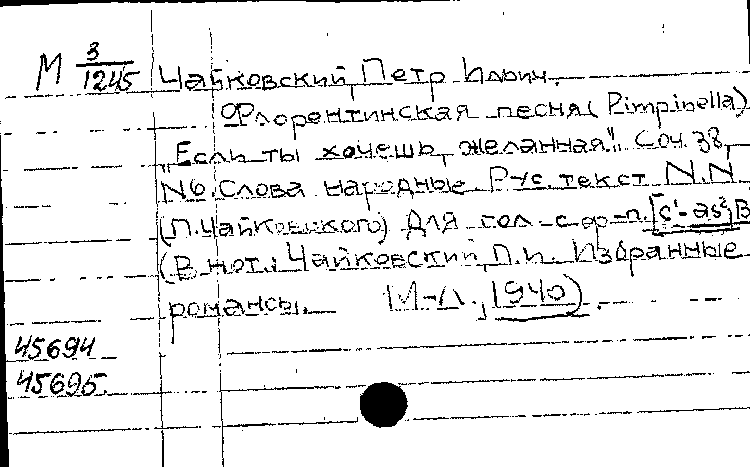 М 3/1245 Чайковский, Петр Ильич.
Флорентинская песня (Pimpinella)
„Если ты хочешь, желанная". Соч. 38,
N6. Слова народные. Рус. текст N.N.
(П. Чайковского) Для гол. с ф-п. [c¹-as²] B
(В нот.: Чайковский, П.И. Избранные
романсы. М-Л., 1940).
45694
45695.